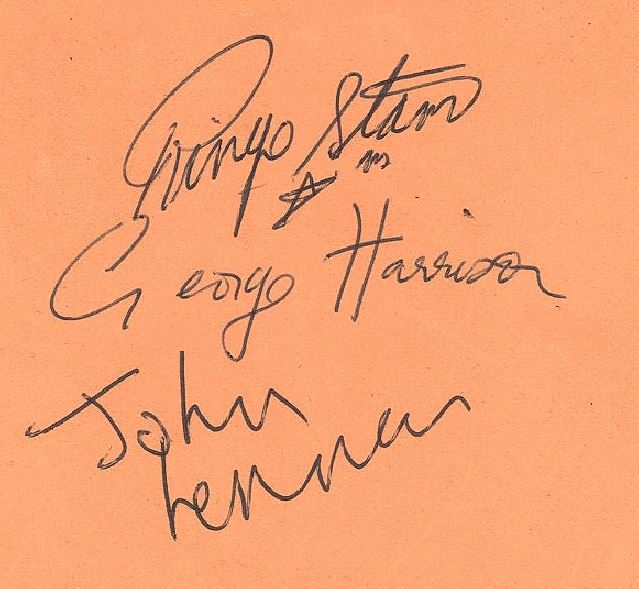 Ringo Starr
George Harrison
John
Lennon